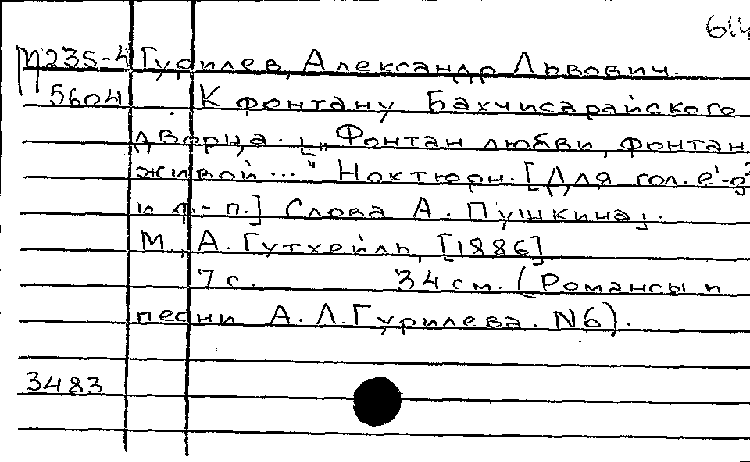 614
М235-4 Гурилев, Александр Львович.
5604 К фонтану Бахчисарайского
дворца. [„Фонтан любви, фонтан
живой..." Ноктюрн. [Для гол. e'-g²
и ф-п.] Слова А. Пушкина].
М., А. Гутхейль, [1886]
7 с. 34 см. (Романсы и
песни А.Л.Гурилева. N6).
3483